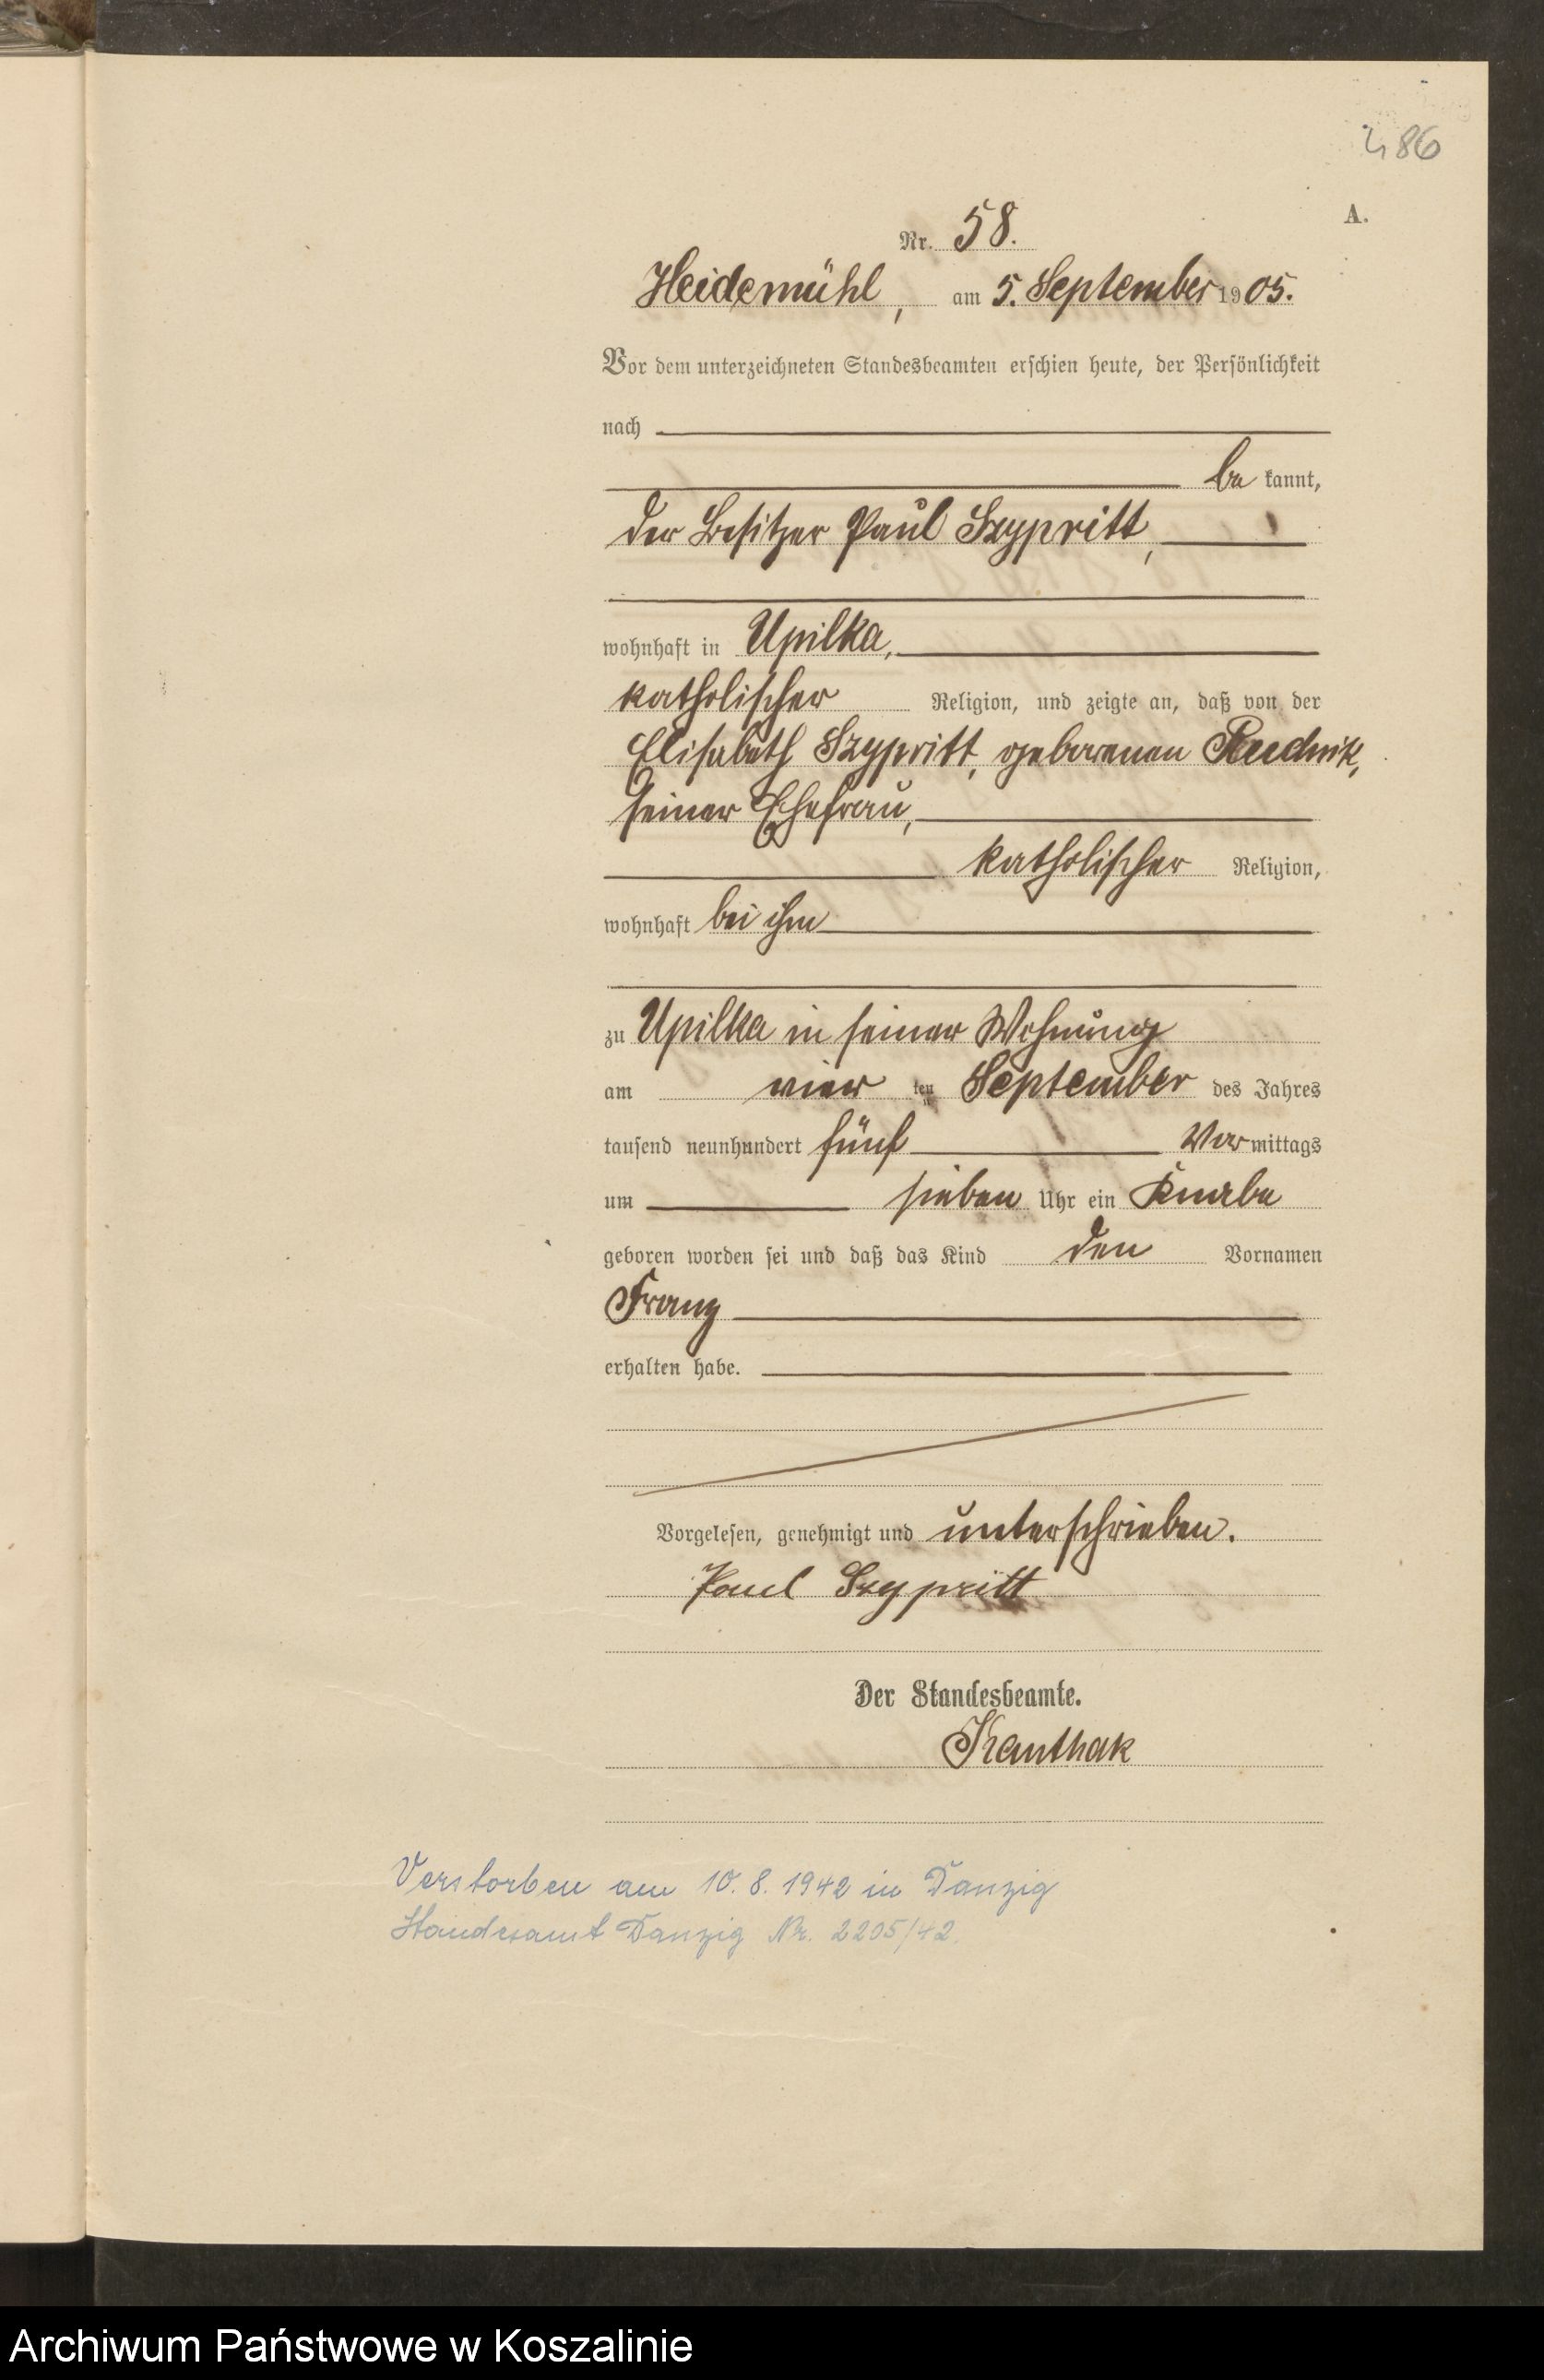 486
A.
Nr. 58.
Heidemühl, am 5. September 1905.
Vor dem unterzeichneten Standesbeamten erschien heute, der Persönlichkeit
nach
be kannt,
der Besitzer Paul Szypritt,
wohnhaft in Upilka,
katholischer Religion, und zeigte an, daß von der
Elisabeth Szypritt, geborenen Rudnik,
seiner Ehefrau,
katholischer Religion,
wohnhaft bei ihm
zu Upilka in seiner Wohnung
am vier ten September des Jahres
tausend neunhundert fünf Vormittags
um sieben Uhr ein Knabe
geboren worden sei und daß das Kind den Vornamen
Franz
erhalten habe.
Vorgelesen, genehmigt und unterschrieben.
Paul Szypritt
Der Standesbeamte.
Kanthak
Verstorben am 10.8.1942 in Danzig
Standesamt Danzig Nr. 2205/42.
Archiwum Państwowe w Koszalinie